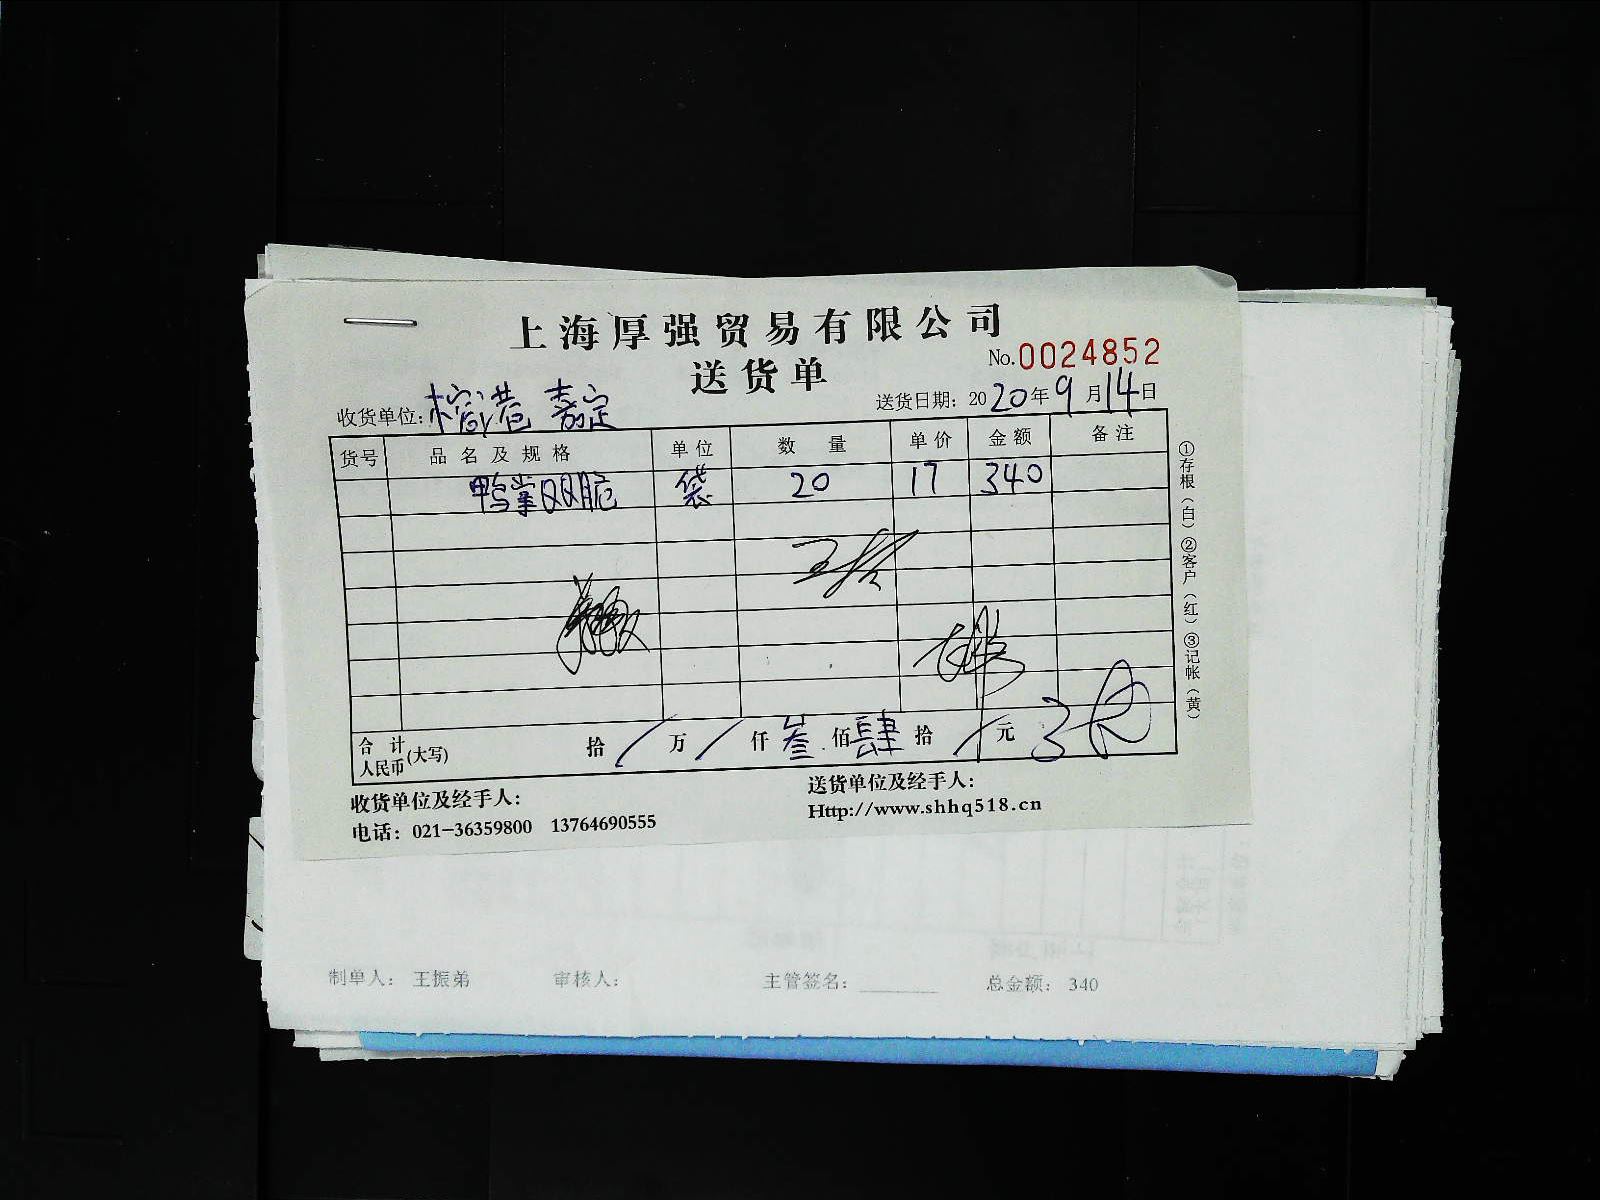 上海厚强贸易有限公司
送货单
No.0024852
收货单位: 榕港 嘉定
送货日期: 2020年9月14日
货号 品名及规格 单位 数量 单价 金额 备注
鸭掌双脆 袋 20 17 340
合计人民币(大写) 拾 / 万 / 仟 叁 佰 肆 拾 / 元
收货单位及经手人:
送货单位及经手人:
电话: 021-36359800 13764690555
Http://www.shhq518.cn
①存根(白)②客户(红)③记帐(黄)
制单人: 王振弟 审核人: 主管签名: ________ 总金额: 340